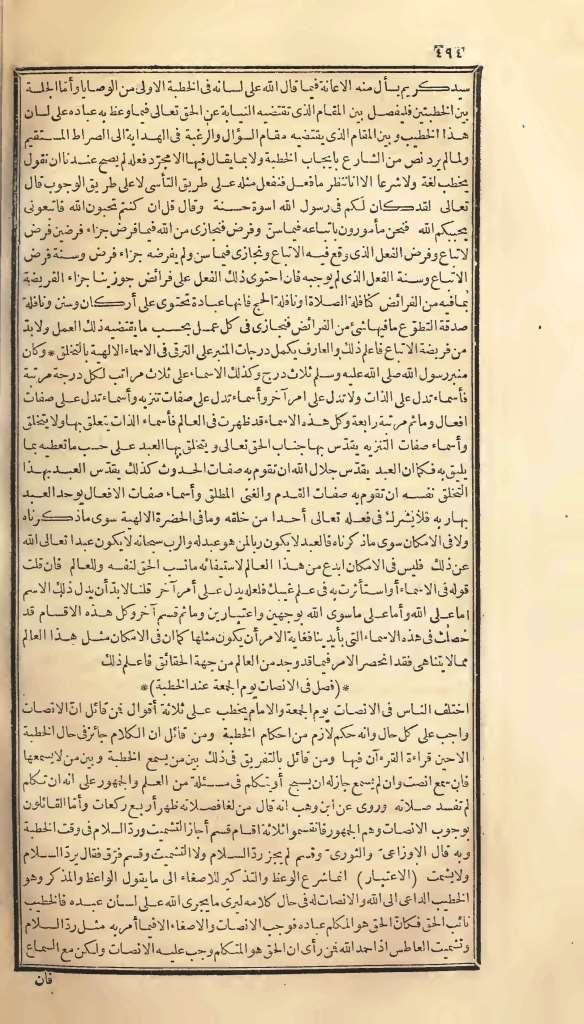 ٤٩٤
سيد كريم يسأل منه الاعانة فيما قال الله على لسانه فى الخطبة الاولى من الوصايا وأما الجلسة
بين الخطبتين فليفصل بين المقام الذى تقتضيه النيابة عن الحق تعالى فيما وعظ به عباده على لسان
هذا الخطيب وبين المقام الذى يقتضيه مقام السؤال والرغبة فى الهداية الى الصراط المستقيم
ولما لم يرد نص من الشارع بايجاب الخطبة ولا بما يقال فيها الا مجرد فعله لم يصح عندنا ان نقول
يخطب لغة ولا شرعا الا اننا ننظر ما فعل فنفعل مثله على طريق التأسى لا على طريق الوجوب قال
تعالى لقد كان لكم فى رسول الله اسوة حسنة وقال قل ان كنتم تحبون الله فاتبعونى
يحببكم الله فنحن مأمورون باتباعه فيما سن وفرض فنجازى من الله فيما فرض جزاء فرضين فرض
لاتباع وفرض الفعل الذى وقع فيه الاتباع ونجازى فيما سن ولم يفرضه جزاء فرض وسنة فرض
الاتباع وسنة الفعل الذى لم يوجبه فان احتوى ذلك الفعل على فرائض جوزينا جزاء الفريضة
بما فيه من الفرائض كنافلة الصلاة ونافلة الحج فانها عبادة تحتوى على أركان وسنن ونافلة
صدقة التطوع ما فيها شئ من الفرائض فنجازى فى كل عمل بحسب ما يقتضيه ذلك العمل ولا بد
من فريضة الاتباع فاعلم ذلك والعارف يكمل درجات المنبر على الترقى فى الاسماء الالهية بالتخلق * وكان
منبر رسول الله صلى الله عليه وسلم ثلاث درج وكذلك الاسماء على ثلاث مراتب لكل درجة مرتبة
فأسماء تدل على الذات ولا تدل على امر آخر وأسماء تدل على صفات تنزيه وأسماء تدل على صفات
افعال وما ثم مرتبة رابعة وكل هذه الاسماء قد ظهرت فى العالم فأسماء الذات يتعلق بها ولا يتخلق
وأسماء صفات التنزيه يقدس بها جناب الحق تعالى ويتخلق بها العبد على حسب ما تعطيه بما
يليق به فكما ان العبد يقدس جلال الله ان تقوم به صفات الحدوث كذلك يقدس العبد بهذا
التخلق نفسه ان تقوم به صفات القدم والغنى المطلق وأسماء صفات الافعال يوحد العبد
بها ربه فلا يشرك فى فعله تعالى أحدا من خلقه وما فى الحضرة الالهية سوى ما ذكرناه
ولا فى الامكان سوى ما ذكرناه فالعبد لا يكون ربا لمن هو عبد له والرب سبحانه لا يكون عبدا تعالى الله
عن ذلك فليس فى الامكان ابدع من هذا العالم لاستيفائه ما نسب الحق لنفسه وللعالم فان قلت
قوله فى الاسماء أو استأثرت به فى علم غيبك فلعله يدل على أمر آخر قلنا لا بد أن يدل ذلك الاسم
اما على الله وأما على ما سوى الله بوجهين واعتبارين وما ثم قسم آخر وكل هذه الاقسام قد
حصلت فى هذه الاسماء التى بأيدينا فغاية الامر أن يكون مثلها كما ان فى الامكان مثل هذا العالم
مما لا يتناهى فقد انحصر الامر فيما قد وجد من العالم من جهة الحقائق فاعلم ذلك
*(فصل فى الانصات يوم الجمعة عند الخطبة)*
اختلف الناس فى الانصات يوم الجمعة والامام يخطب على ثلاثة أقوال فمن قائل ان الانصات
واجب على كل حال وانه حكم لازم من احكام الخطبة ومن قائل ان الكلام جائز فى حال الخطبة
الا حين قراءة القرءآن فيها ومن قائل بالتفريق فى ذلك بين من يسمع الخطبة وبين من لا يسمعها
فان سمع انصت وان لم يسمع جاز له ان يسبح أو يتكلم فى مسئلة من العلم والجمهور على انه ان تكلم
لم تفسد صلاته وروى عن ابن وهب انه قال من لغا فصلاته ظهر أربع ركعات وأما القائلون
بوجوب الانصات وهم الجمهور فانقسموا ثلاثة اقسام قسم أجاز التشميت ورد السلام فى وقت الخطبة
وبه قال الاوزاعى والثورى وقسم لم يجز رد السلام ولا التشميت وقسم فرق فقال يرد السلام
ولا يشمت (الاعتبار) انما شرع الوعظ والتذكير للاصغاء الى ما يقول الواعظ والمذكر وهو
الخطيب الداعى الى الله والانصات له فى حال كلامه ليرى ما يجرى الله على لسان عبده فالخطيب
نائب الحق فكأن الحق هو المكلم عباده فوجب الانصات والاصغاء الا فيما أمر به مثل رد السلام
وتشميت العاطس اذا حمد الله فمن رأى ان الحق هو المتكلم وجب عليه الانصات ولكن مع السماع
فان